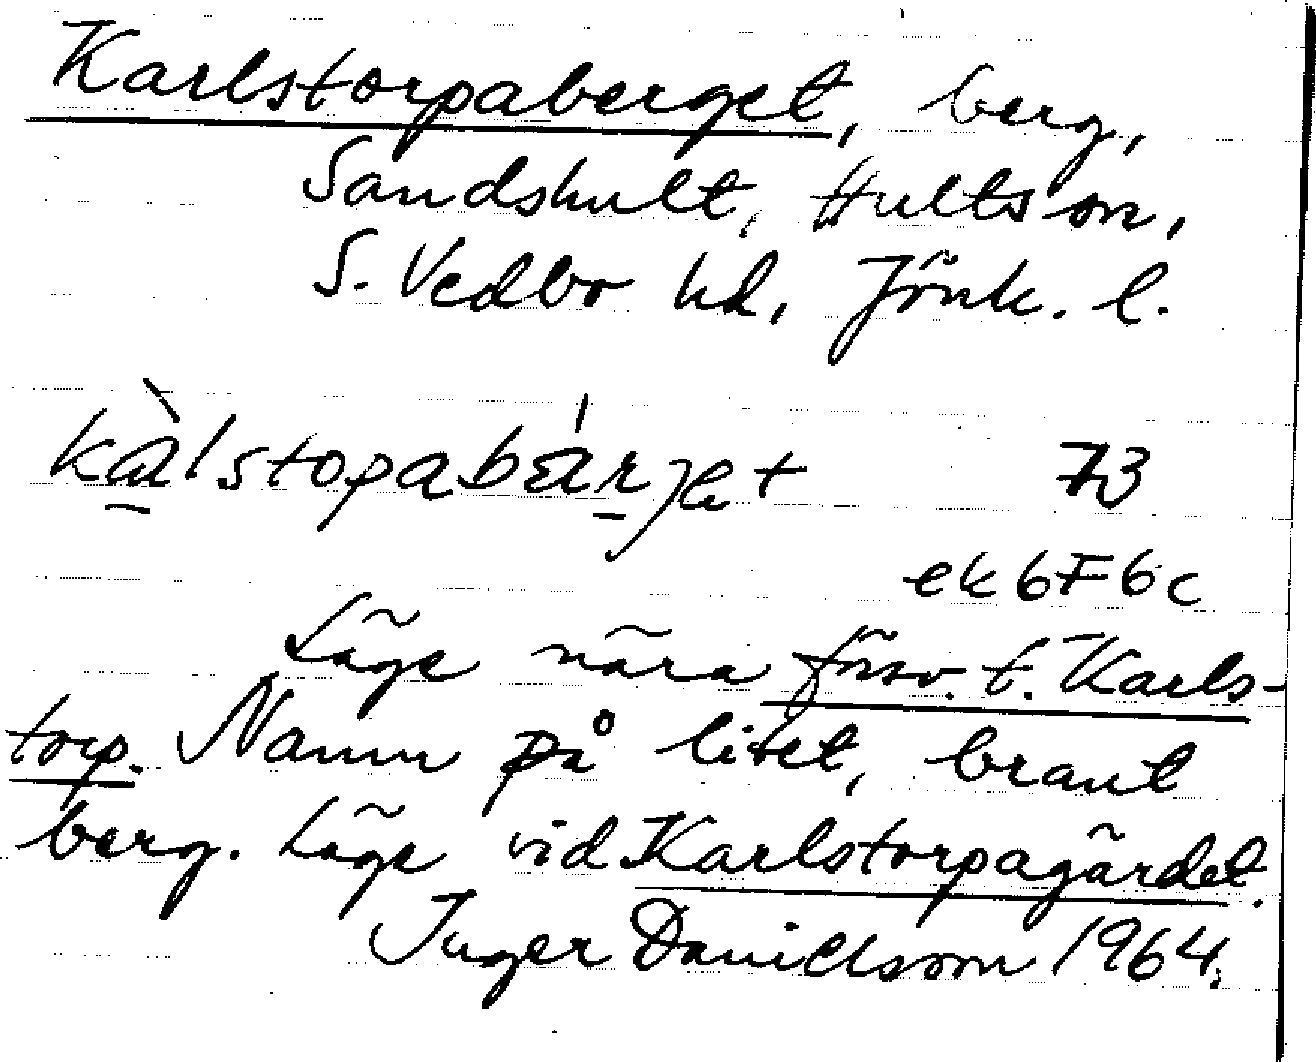 Karlstorpaberget, berg,
Sandshult, Hults sn,
S. Vedbo hd, Jönk. l.
kàlstopabä́rjet 73
ek 6F6c
Läge nära förs­v. t. Karls-
torp. Namn på litet, brant
berg. Läge vid Karlstorpagärdet.
Inger Danielsson 1964.